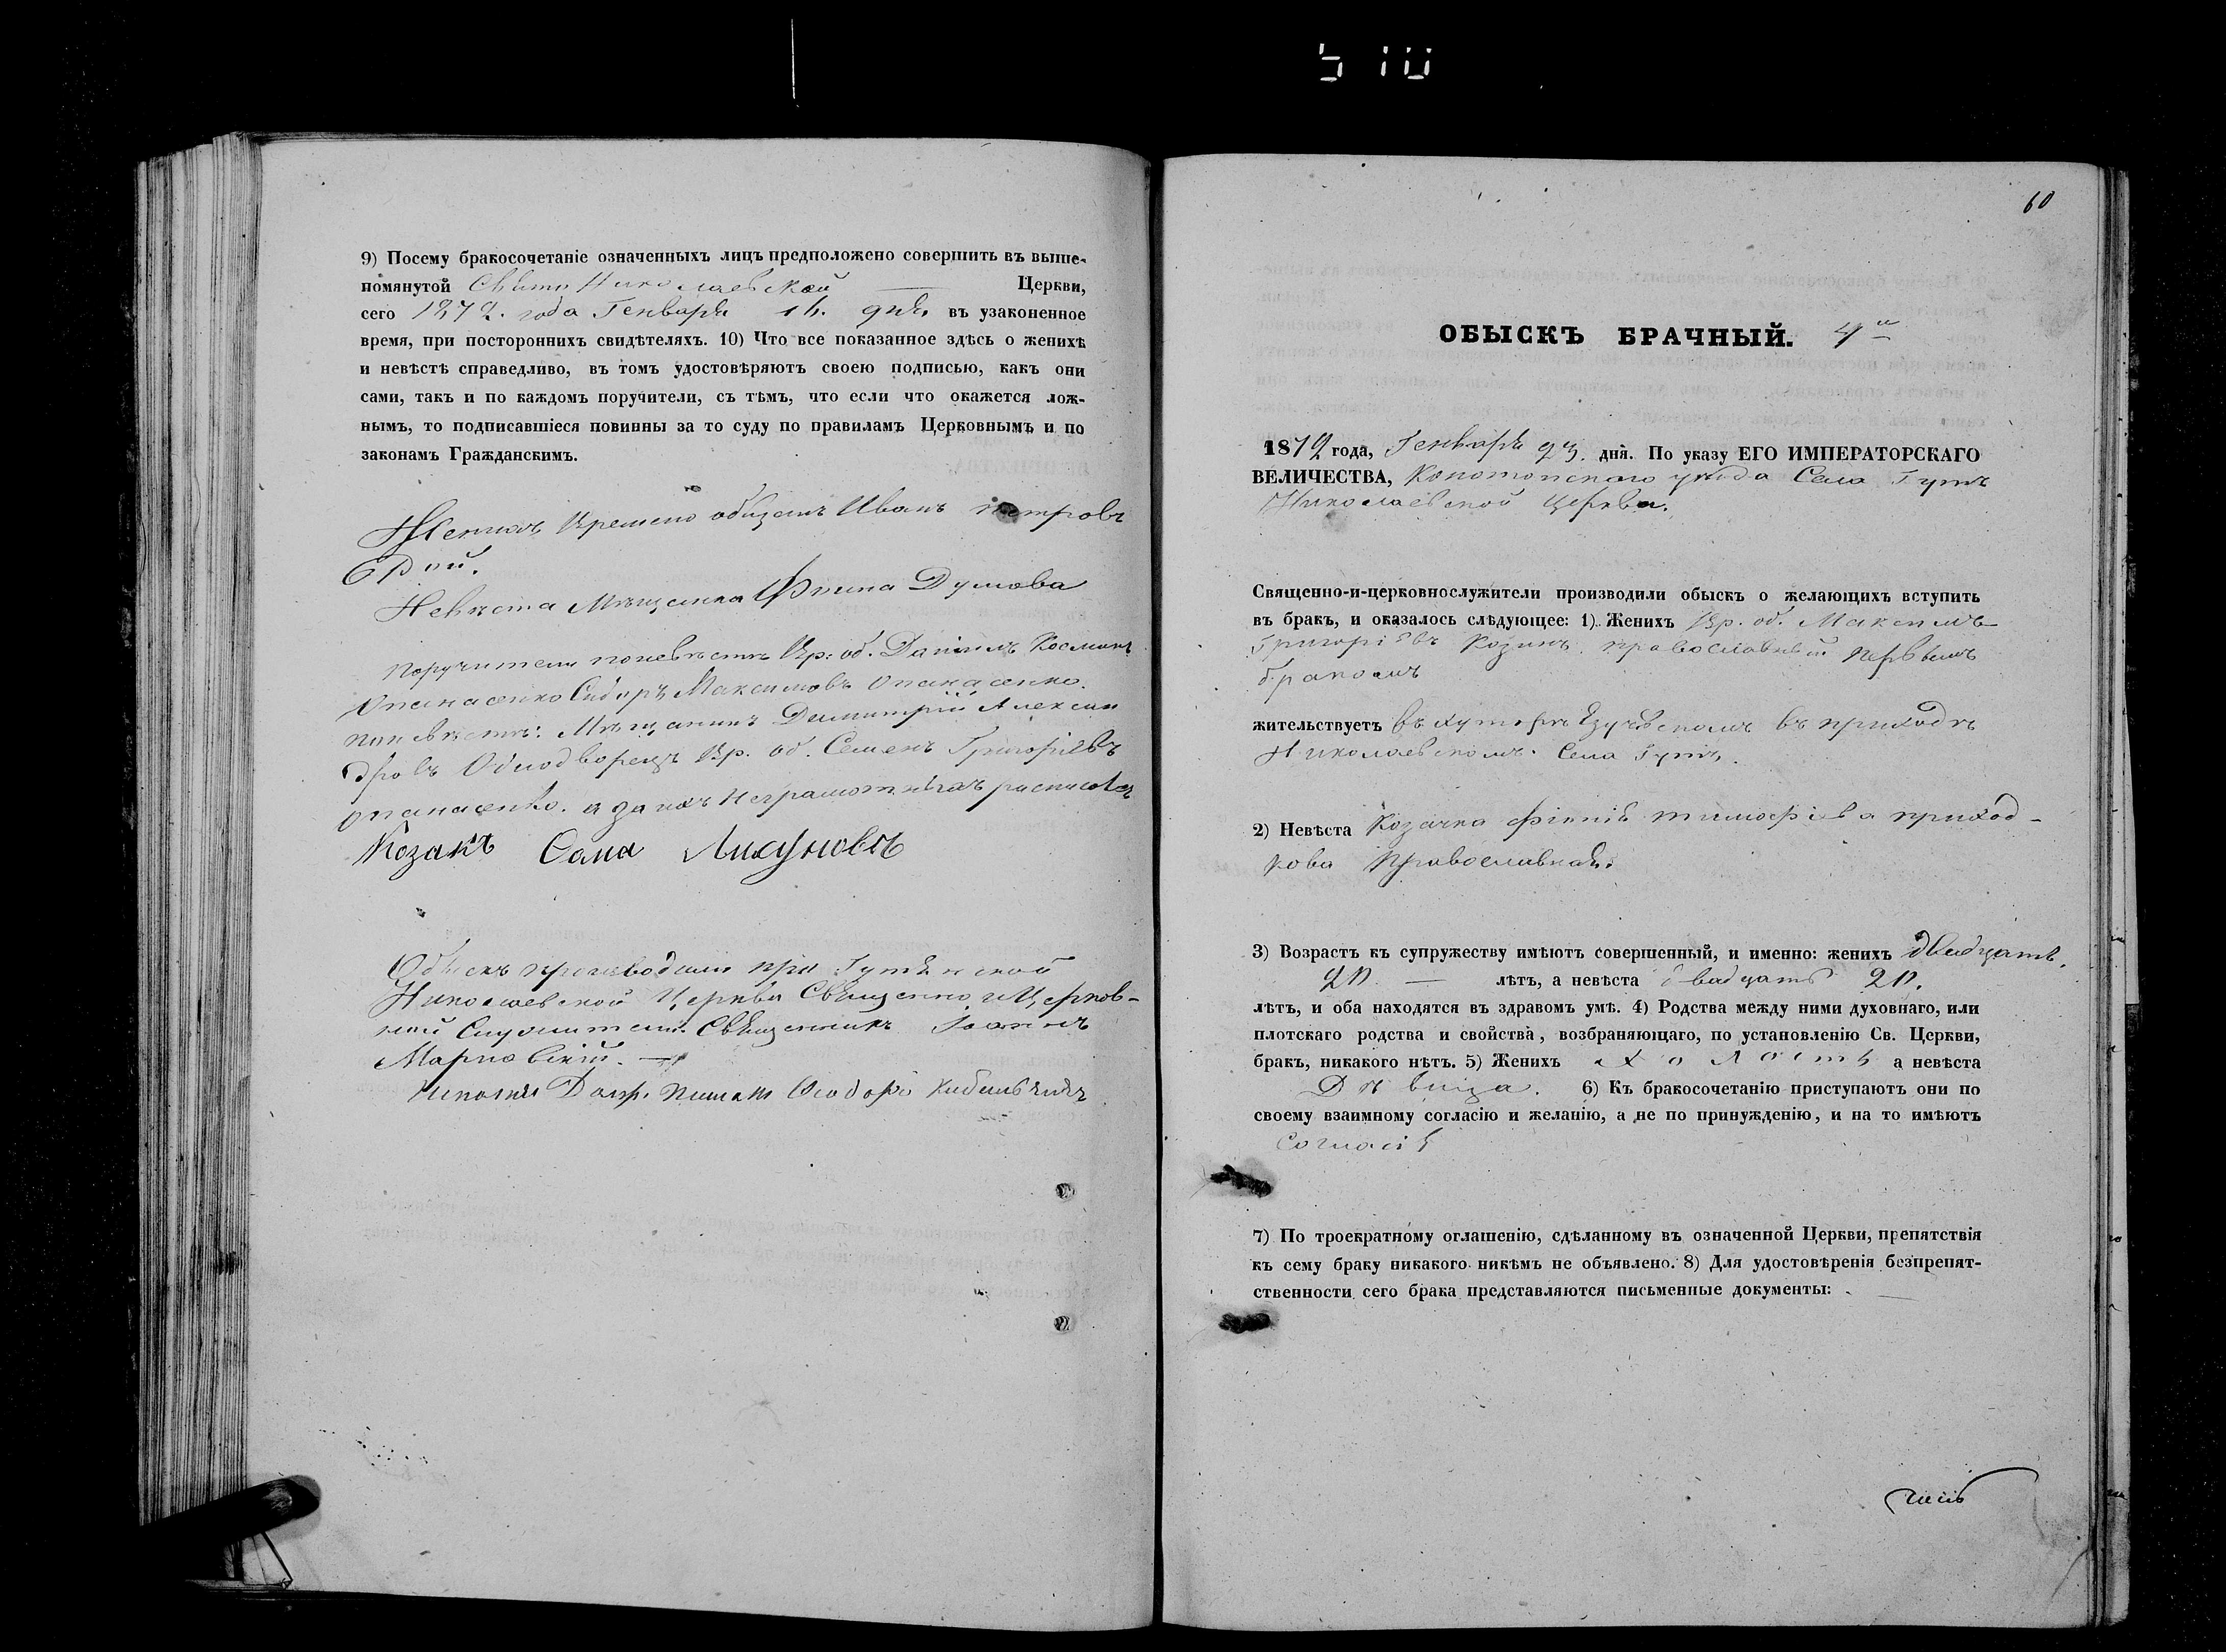 510
9) Посему бракосочетаніе означенныхъ лицъ предположено совершить въ выше-
помянутой Свято Николаевской — Церкви,
сего 1872. года Генваря 16. дня, въ узаконенное
время, при постороннихъ свидѣтеляхъ. 10) Что все показанное здѣсь о женихѣ
и невѣстѣ справедливо, въ томъ удостовѣряютъ своею подписью, какъ они
сами, такъ и по каждомъ поручители, съ тѣмъ, что если что окажется лож-
нымъ, то подписавшіеся повинны за то суду по правиламъ Церковнымъ и по
законамъ Гражданскимъ.
Женихъ Времено обязанъ Иванъ Петровъ
Невѣста Мѣщанка Думова
Поручители Вр: об. Даніилъ Косминъ
Опанасенко Максимовъ Опанасенко.
по невѣстѣ: Мѣщанинъ Димитрій Алексан
дровъ Однодворецъ Вр. об. Семенъ Григоріевъ
Опанасенко. а за нихъ неграмотныхъ росписался
Козакъ Сава
Обыскъ производили при Гутянской
Николаевской Церкви Священно и Церков-
ной Служители. Священникъ Іоаннъ
60
ОБЫСКЪ БРАЧНЫЙ. 4й
1872 года, Генваря 23. дня. По указу ЕГО ИМПЕРАТОРСКАГО
ВЕЛИЧЕСТВА, Конотопскаго уѣзда Села Гутъ
Николаевской Церкви.
Священно-и-церковнослужители производили обыскъ о желающихъ вступить
въ бракъ, и оказалось слѣдующее: 1) Женихъ Вр. об. Максимъ
Григоріевъ Козинъ. православный первымъ
бракомъ
жительствуетъ въ хуторѣ въ приходѣ
Николаевскомъ. Села Гутъ.
2) Невѣста Козачка Тимофіева приход-
кова Православная.
3) Возрастъ къ супружеству имѣютъ совершенный, и именно: женихъ двадцать.
20. — лѣтъ, а невѣста двадцать 20.
лѣтъ, и оба находятся въ здравомъ умѣ. 4) Родства между ними духовнаго, или
плотскаго родства и свойства, возбраняющаго, по установленію Св. Церкви,
бракъ, никакого нѣтъ. 5) Женихъ Холостъ а невѣста
Дѣвица. 6) Къ бракосочетанію приступаютъ они по
своему взаимному согласію и желанію, а не по принужденію, и на то имѣютъ
Согласіе
7) По троекратному оглашенію, сдѣланному въ означенной Церкви, препятствія
къ сему браку никакого никѣмъ не объявлено. 8) Для удостовѣренія безпрепят-
ственности сего брака представляются письменные документы: —